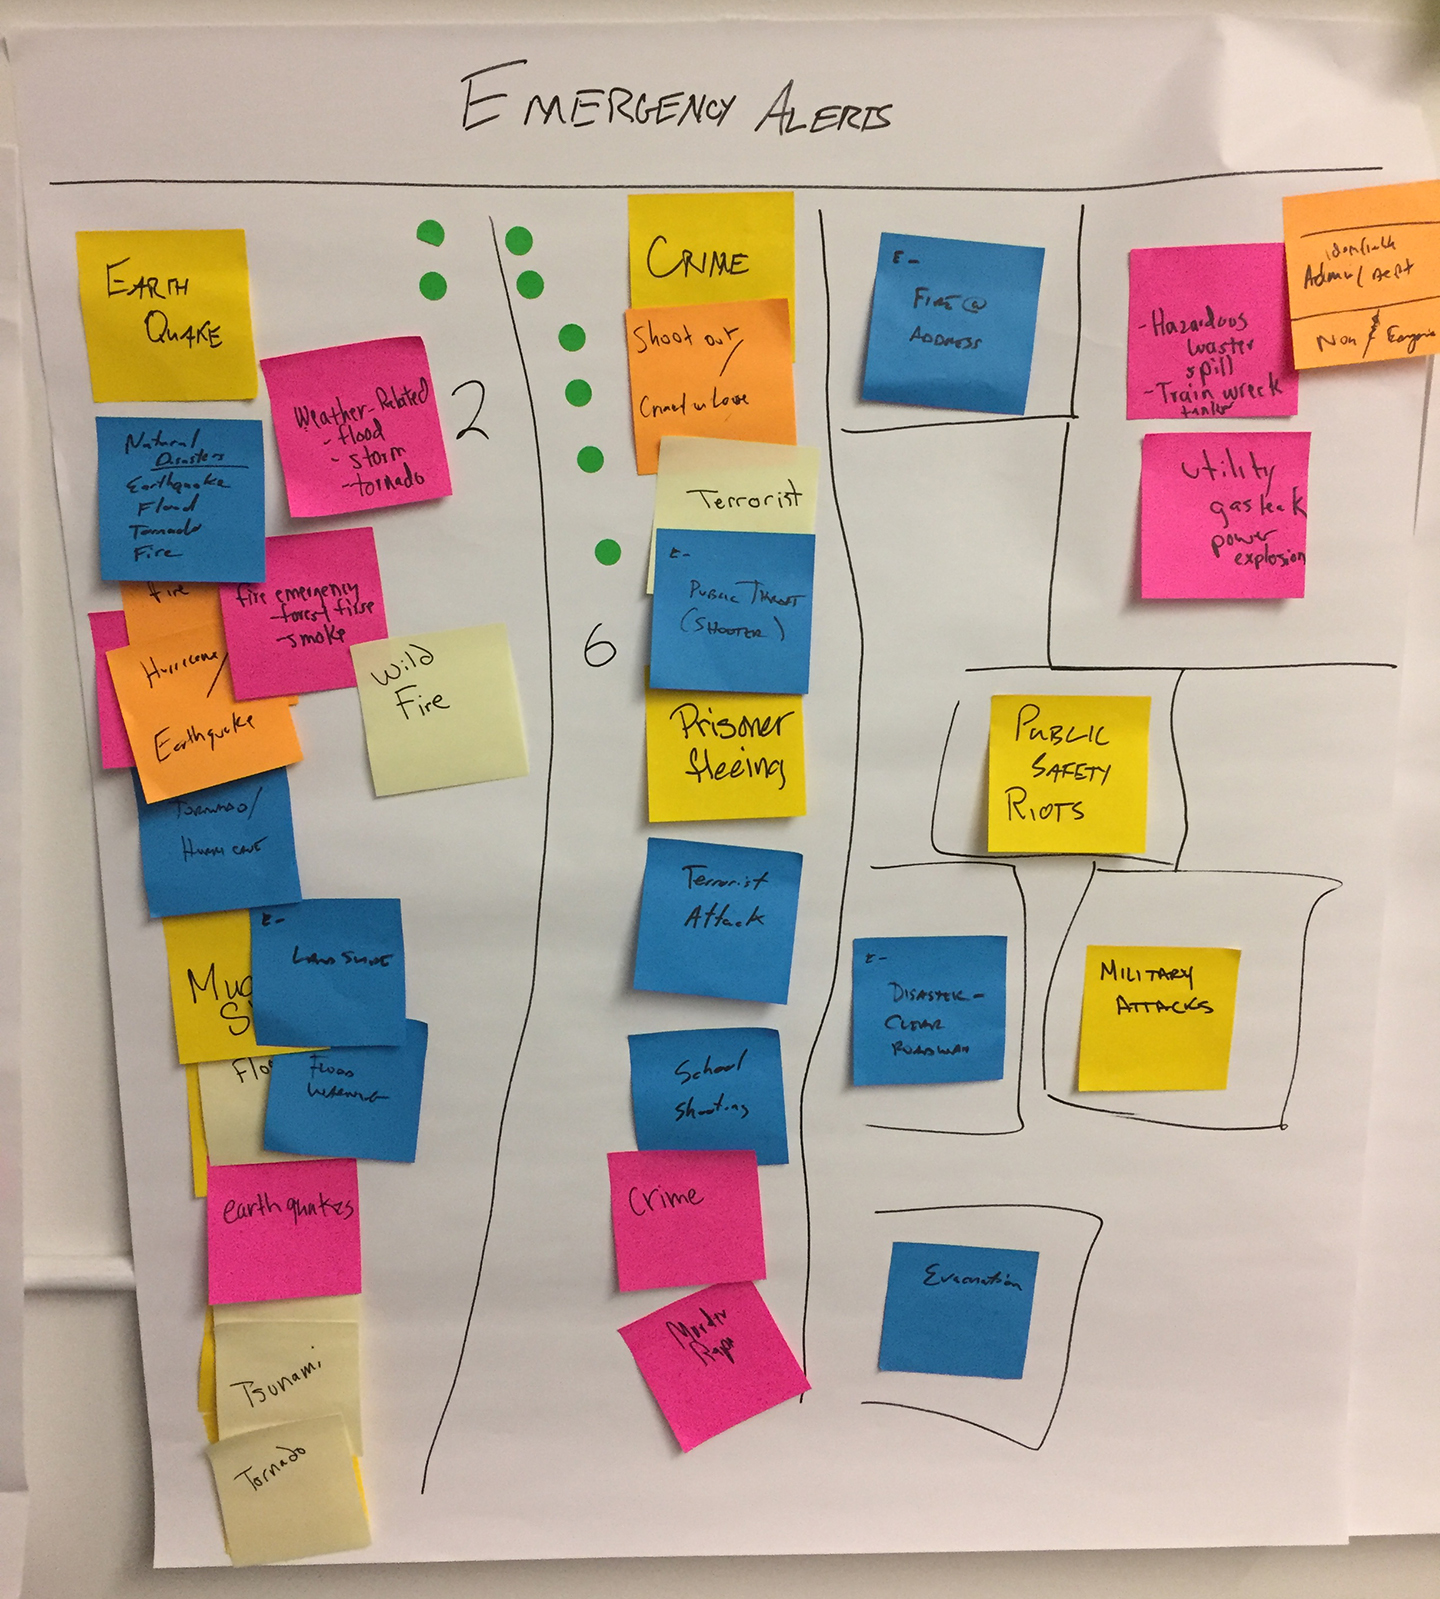 EMERGENCY ALERTS
EARTH
QUAKE
2
Weather-Related
- flood
- storm
- tornado
Natural
Disasters
Earthquake
Flood
Tornado
Fire
fire
fire emergency
- forest firse
- smoke
Wild
Fire
Hurricane/
Earthquake
TORNADO/
HURRICANE
Mud
E-
LAND SLIDE
FLOOD
WARNING
earthquakes
Tsunami
Tornado
CRIME
Shoot out/
Terrorist
E-
PUBLIC THREAT
(SHOOTER)
6
Prisoner
fleeing
Terrorist
Attack
School
Shooting
Crime
Rape
E-
FIRE @
ADDRESS
- Hazardous
waster
spill
- Train wreck
tanker
Non
utility
gas leak
power
explosion
PUBLIC
SAFETY
RIOTS
E-
DISASTER -
CLEAR
ROADWAY
MILITARY
ATTACKS
Evacuation